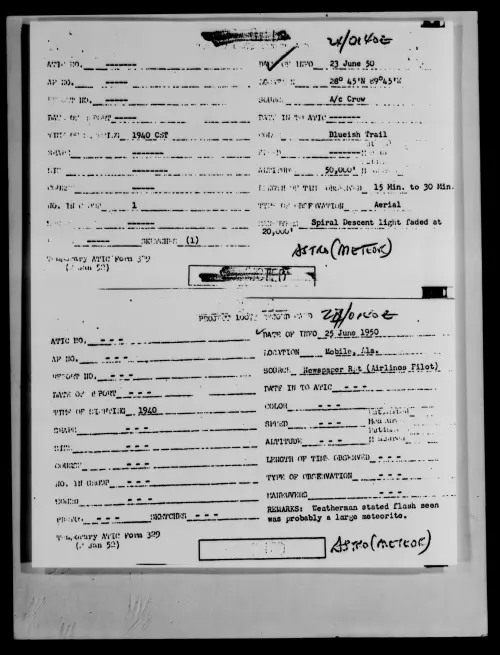 24/0140Z
ATIC NO. ------ DATE OF INFO 23 June 50
AF NO. ----- LOCATION 28° 45'N 89°45'W
REPORT NO. ----- SOURCE A/c Crew
DATE OF REPORT ----- DATE IN TO ATIC -------
TIME OF SIGHTING 1940 CST COLOR Blueish Trail
SHAPE ------- SPEED --------
SIZE -------- ALTITUDE 50,000'
COURSE ----- LENGTH OF TIME OBSERVED 15 Min. to 30 Min.
NO. IN GROUP 1 TYPE OF OBSERVATION Aerial
----- MANEUVERS Spiral Descent light faded at
20,000'
----- SKETCHES (1)
Temporary ATIC Form 329
(2 Jan 52)
ASTRO (METEOR)
PROJECT 10073 RECORD CARD 24/0140Z
ATIC NO. - - - DATE OF INFO 25 June 1950
AF NO. - - - LOCATION Mobile, Ala.
REPORT NO. - - - SOURCE Newspaper Rpt (Airlines Pilot)
DATE OF REPORT - - - DATE IN TO ATIC - - -
TIME OF SIGHTING 1940 COLOR - - -
SHAPE - - - SPEED - - -
SIZE - - - ALTITUDE - - -
COURSE - - - LENGTH OF TIME OBSERVED - - -
NO. IN GROUP - - - TYPE OF OBSERVATION - - -
SOUND - - - MANEUVERS - - -
PHOTOS - - - SKETCHES - - - REMARKS: Weatherman stated flash seen
was probably a large meteorite.
Temporary ATIC Form 329
(2 Jan 52)
ASTRO (METEOR)